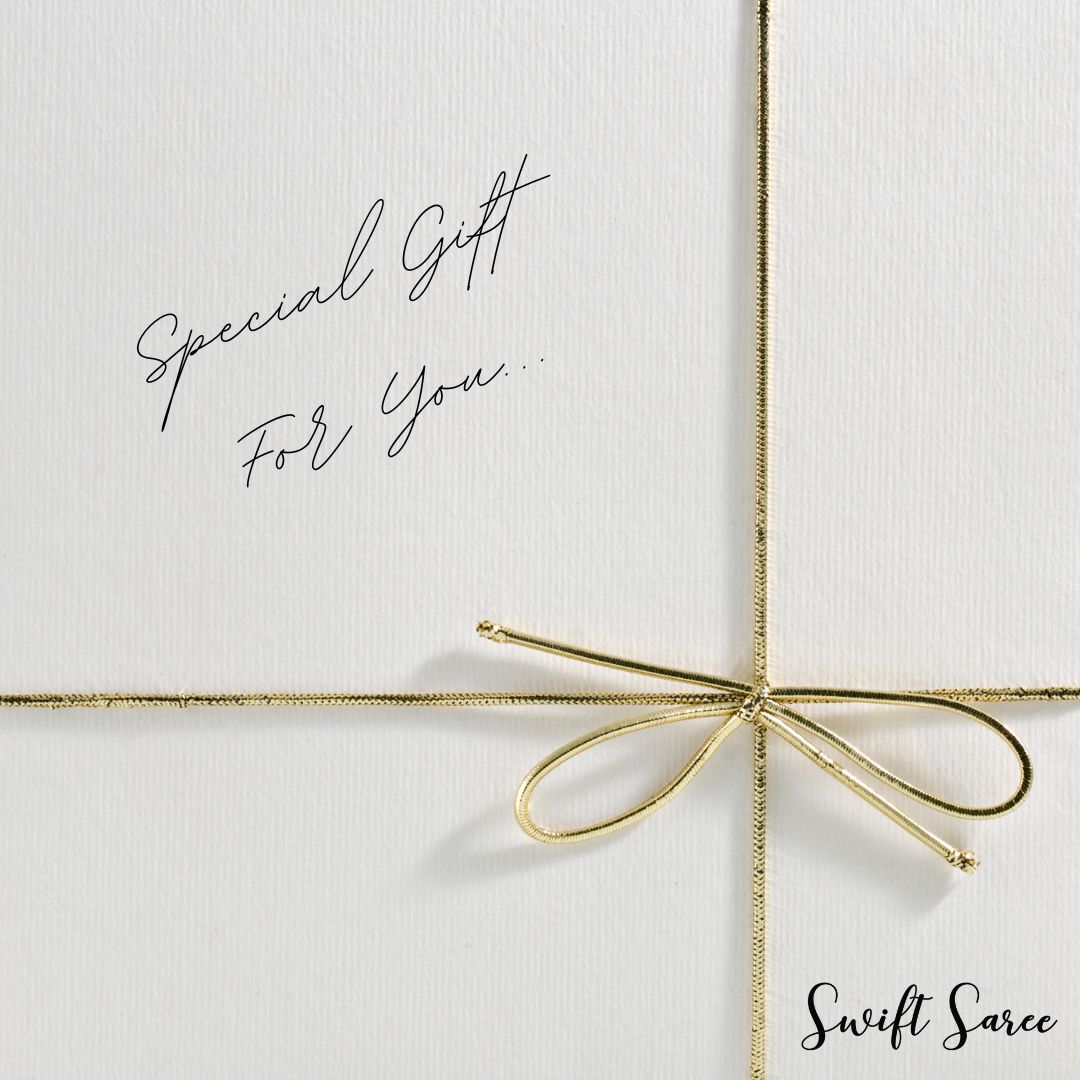 Special Gift
For You...
Swift Saree